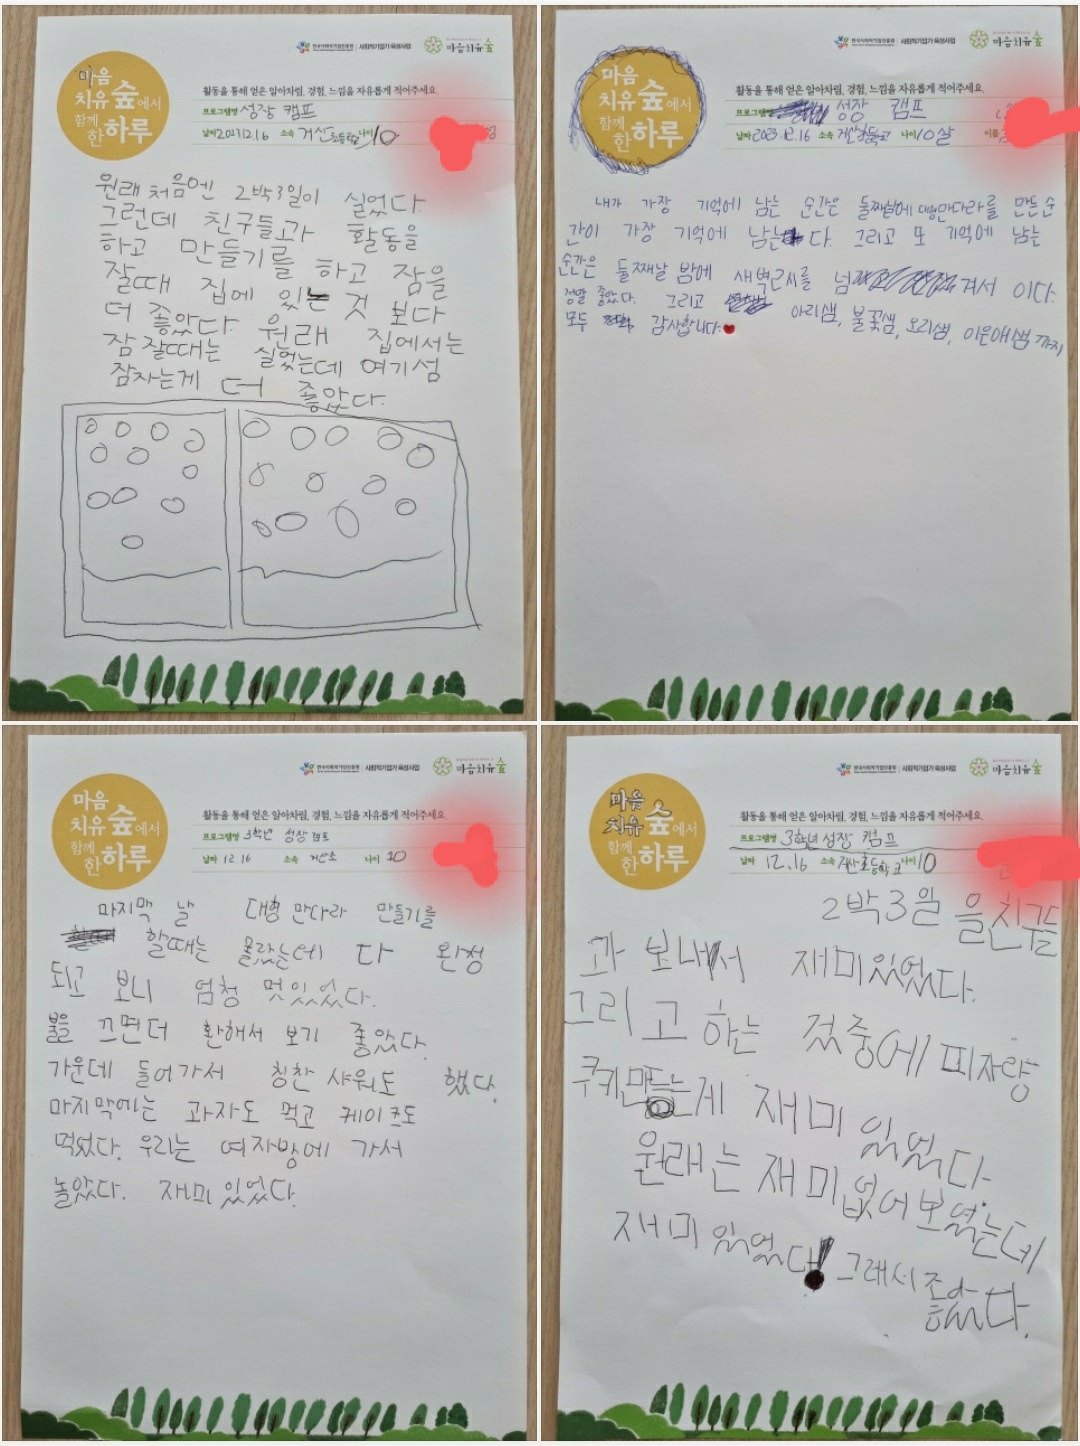 한국사회적기업진흥원 사회적기업가 육성사업 마음치유숲
마음
치유 숲 에서
함께
한 하루
활동을 통해 얻은 알아차림, 경험, 느낌을 자유롭게 적어주세요.
프로그램명 성장 캠프
날짜 12.16 소속 거산초등학교 나이 10
원래 처음엔 2박3일이 싫었다.
그런데 친구들고가 활동을
하고 만들기를 하고 잠을
잘때 집에 있는 것 보다
더 좋았다. 원래 집에서는
잠 잘때는 싫었는데 여기섬
잠자는게 더 좋았다.
한국사회적기업진흥원 사회적기업가 육성사업 마음치유숲
마음
치유 숲 에서
함께
한 하루
활동을 통해 얻은 알아차림, 경험, 느낌을 자유롭게 적어주세요.
프로그램명 성장 캠프
날짜 2023.12.16 소속 거산초등학교 나이 10살 이름
내가 가장 기억에 남는 순간은 둘째날에 대형만다라를 만든순
간이 가장 기억에 남는다. 그리고 또 기억에 남는
순간은 둘째날 밤에 새벽2시를 넘겨서 이다.
정말 좋았다. 그리고 아리샘, 불꽃샘, 오리샘, 이은애샘 까지
모두 감사합니다.
한국사회적기업진흥원 사회적기업가 육성사업 마음치유숲
마음
치유 숲 에서
함께
한 하루
활동을 통해 얻은 알아차림, 경험, 느낌을 자유롭게 적어주세요.
프로그램명 3학년 성장 캠프
날짜 12.16 소속 거산초 나이 10
마지막 날 대형 만다라 만들기를
할때는 몰랐는데 다 완성
되고 보니 엄청 멋있었다.
불을 끄면더 환해서 보기 좋았다.
가운데 들어가서 칭찬 샤워도 했다.
마지막에는 과자도 먹고 케이크도
먹었다. 우리는 여자방에 가서
놀았다. 재미있었다.
한국사회적기업진흥원 사회적기업가 육성사업 마음치유숲
마음
치유 숲 에서
함께
한 하루
활동을 통해 얻은 알아차림, 경험, 느낌을 자유롭게 적어주세요.
프로그램명 3학년 성장 캠프
날짜 12.16 소속 거산초등학교 나이 10
2박3일 을친구들
과 보내서 재미있었다.
그리고 하는 것중에 피자랑
쿠키만드는게 재미 있었다.
원래는 재미없어보였는데
재미 있었다! 그래서 좋았다.